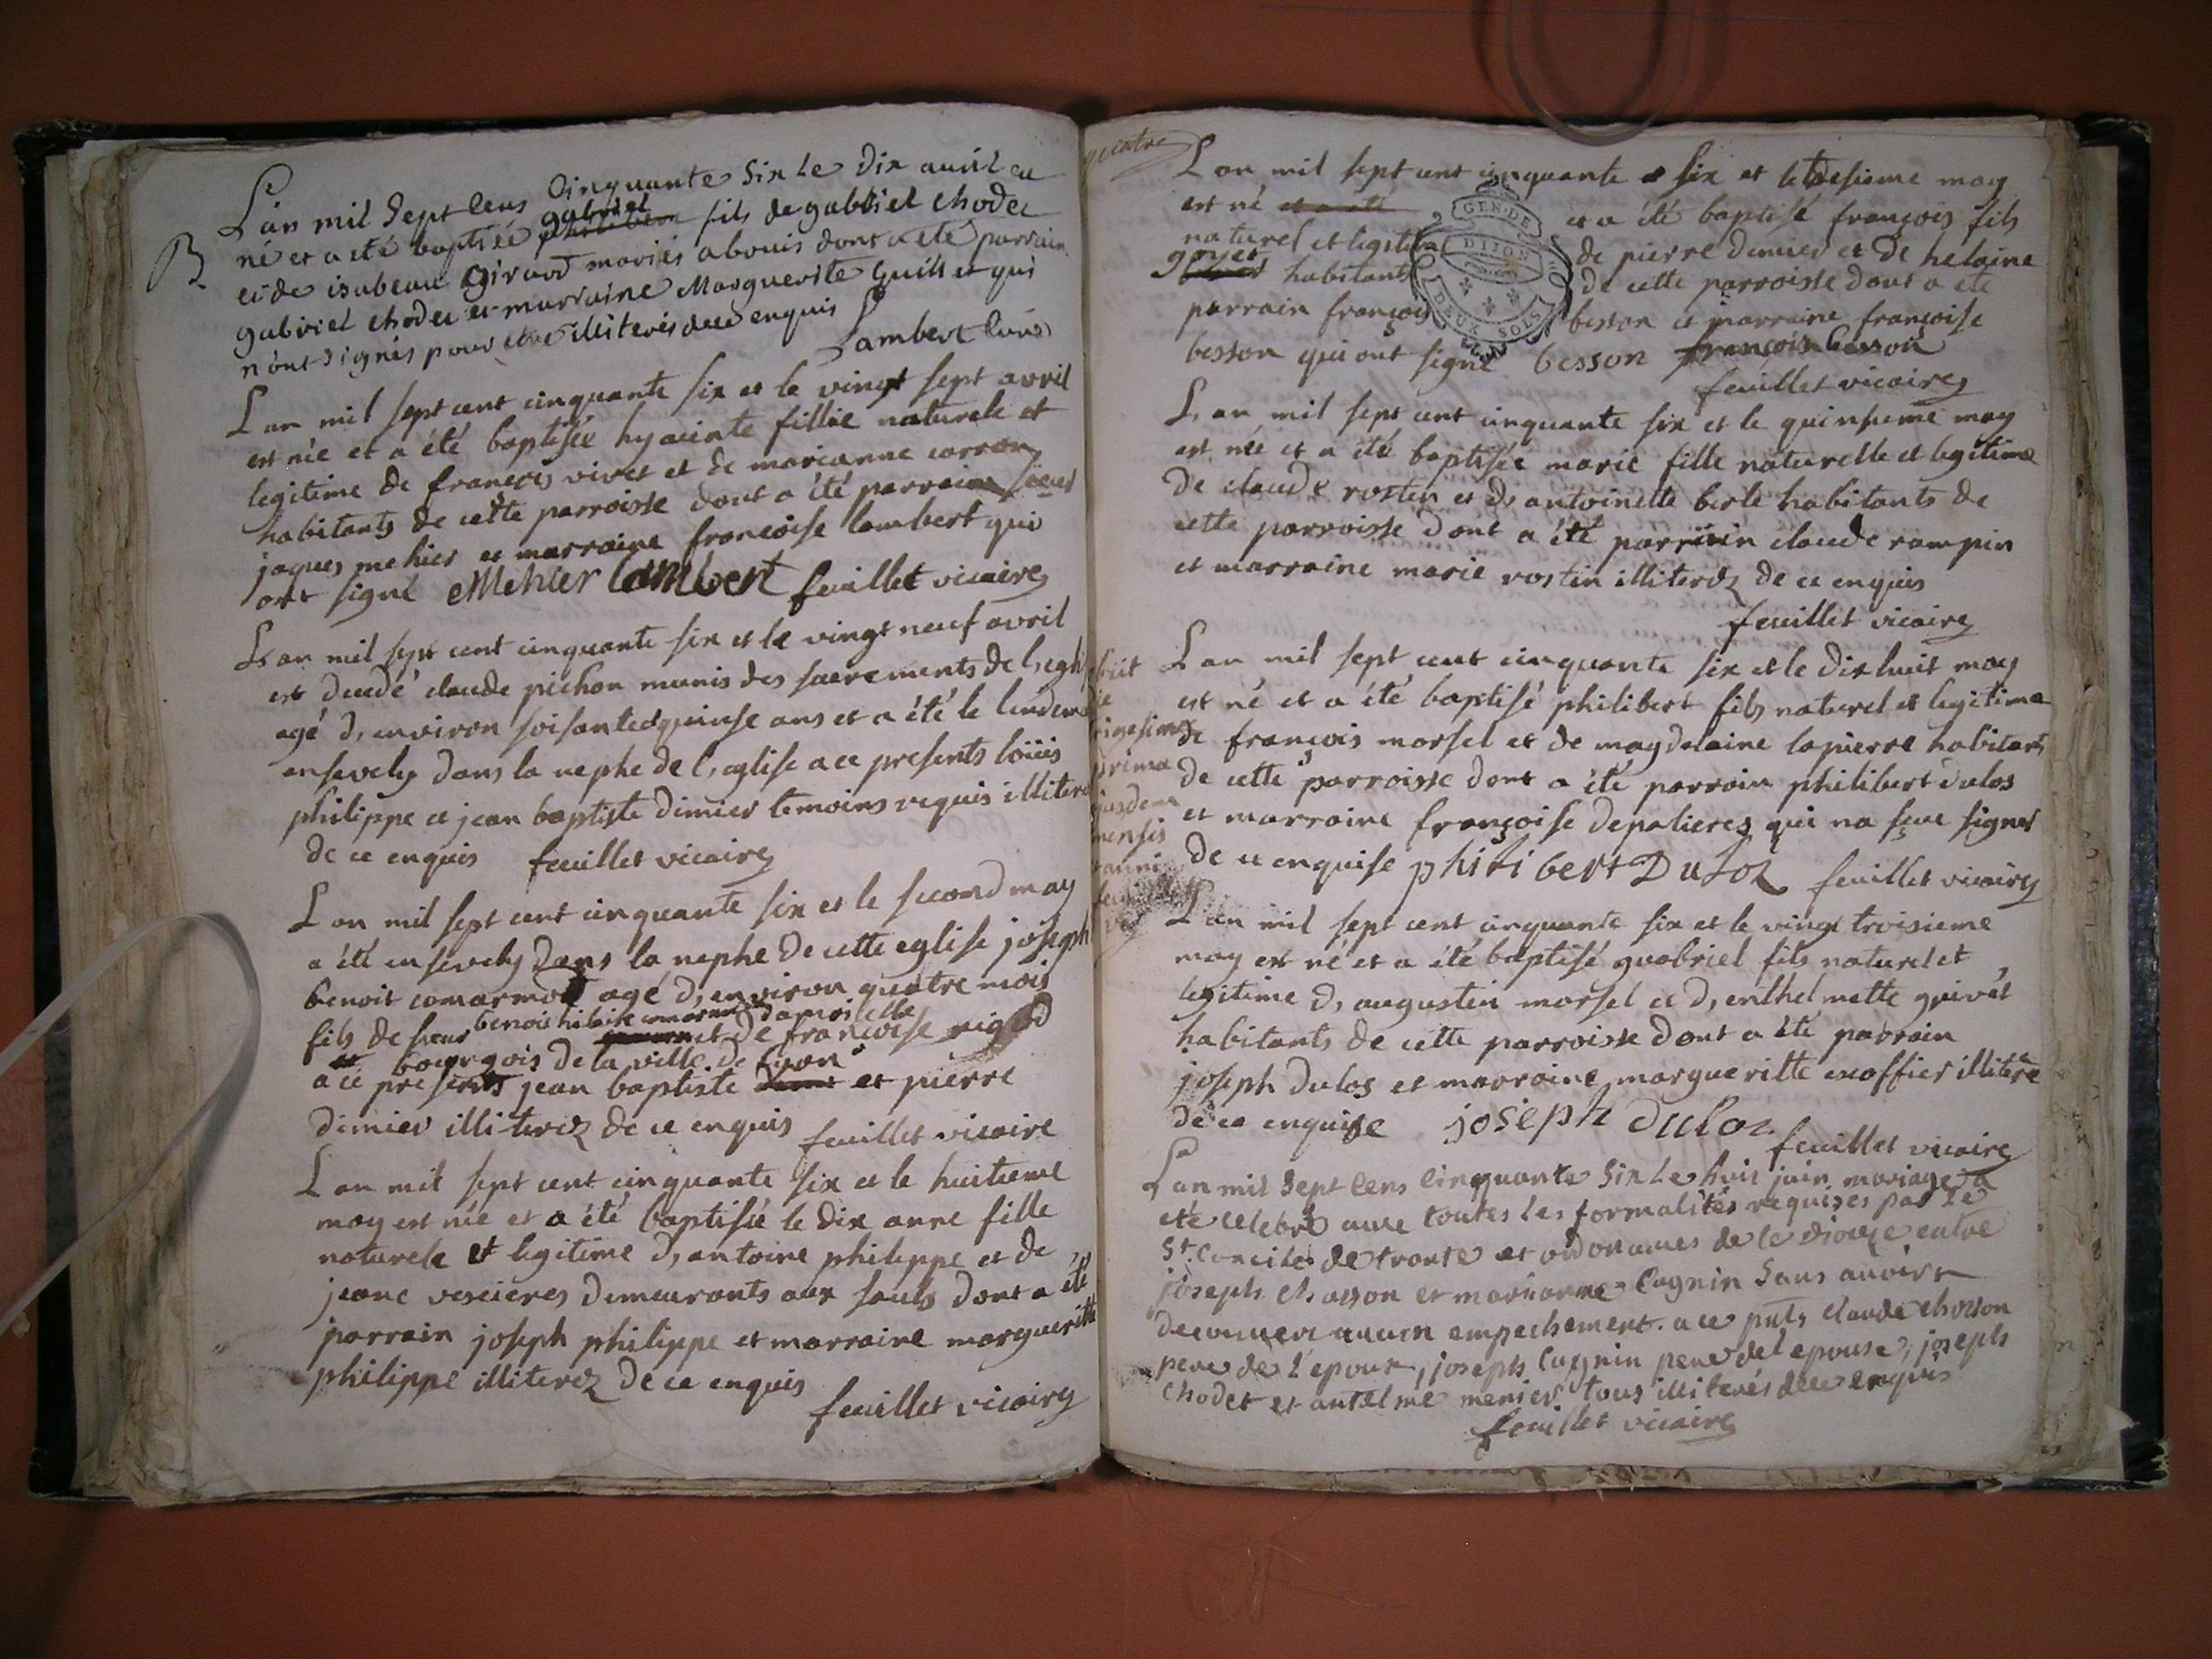 B
L'an mil Sept Cens Cinquante Six Le Dix auril est
né et a eté baptisée gabriel philibert fils de gabriel chodet
et de isabeau Giraud mariés abouis dont a eté parrain
gabriel chodet et marraine Marguerite Guill et qui
n'ont signés pour etre illiterés de ce enquis
Lambert Curé
L an mil sept cent cinquante six et le vingt sept avril
est née et a été baptisée hyacinte fillie naturele et
legitime de françois vivet et de marianne carron
habitants de cette parroisse dont a été parrain sieur
jaques mehier et marraine françoise lambert qui
ont signé Mehier lambert feuillet vicaire
L an mil sept cent cinquante six et le vingt neuf avril
est decedé claude pichon munis des sacrements de l,eglise
agé d, environ soisante quinse ans et a été le lendemain
ensevely dans la nephe de l, eglise a ce presents loüis
philippe et jean baptiste dimier temoins requis illiterez
de ce enquis feuillet vicaire
L an mil sept cent cinquante six et le second may
a été ensevely dans la nephe de cette eglise joseph
benoit comarmot agé d, environ quatre mois
fils de sieur benoit hilaire comarmot et de damoiselle françoise rigod
bourgois de la ville de lyon
a ce presents jean baptiste et pierre
dimier illiterez de ce enquis feuillet vicaire
L an mil sept cent cinquante six et le huitieme
may est née et a été baptisée le dix anne fille
naturele et legitime d, antoine philippe et de
jeane vescieres demeurants aux sauts dont a été
parrain joseph philippe et marraine margueritte
philippe illiterez de ce enquis
feuillet vicaire
quatre
L an mil sept cent cinquante et six et le tresieme may
est né et a été et a été baptisé françois fils
naturel et legitime de pierre dimier et de helaine
goyet habitants de cette parroisse dont a été
parrain françois besson et marraine françoise
besson qui ont signé besson françois besson
feuillet vicaire
GEN. DE
DIJON
DEUX SOLS
L, an mil sept cent cinquante six et le quinsieme may
est née et a été baptisée marie fille naturelle et legitime
de claude rostin et d, antoinette berte habitants de
cette parroisse dont a été parrain claude rampin
et marraine marie rostin illiterez de ce enquis
feuillet vicaire
L an mil sept cent cinquante six et le dix huit may
est né et a été baptisé philibert fils naturel et legitime
de françois morsel et de magdelaine lapierre habitants
de cette parroisse dont a été parrain philibert dulos
et marraine françoise depalieres qui na sçue signer
de ce enquise philibert Duloz feuillet vicaire
prima
mensis
L an mil sept cent cinquante six et le vingt troisieme
may est né et a été baptisé guabriel fils naturel et
legitime d, augustin morsel et d, enthelmette guivet
habitants de cette parroisse dont a été parrain
joseph dulos et marraine margueritte exoffier illiterée
de ce enquise joseph duloz
feuillet vicaire
L'an mil Sept Cens Cinquante Six Le huit juin mariage a
eté celebré avec toutes les formalités requises par Le
St. Concile de trante et ordonances de ce dioceze entre
joseph chosson et marianne Cugnin Sans avoir
decouvert aucun empechement. a ce pnts claude chosson
pere de l'epoux, joseph Cugnin pere de l'epouse, joseph
chodet et antelme menier tous illiterés de ce enquis
feuillet vicaire